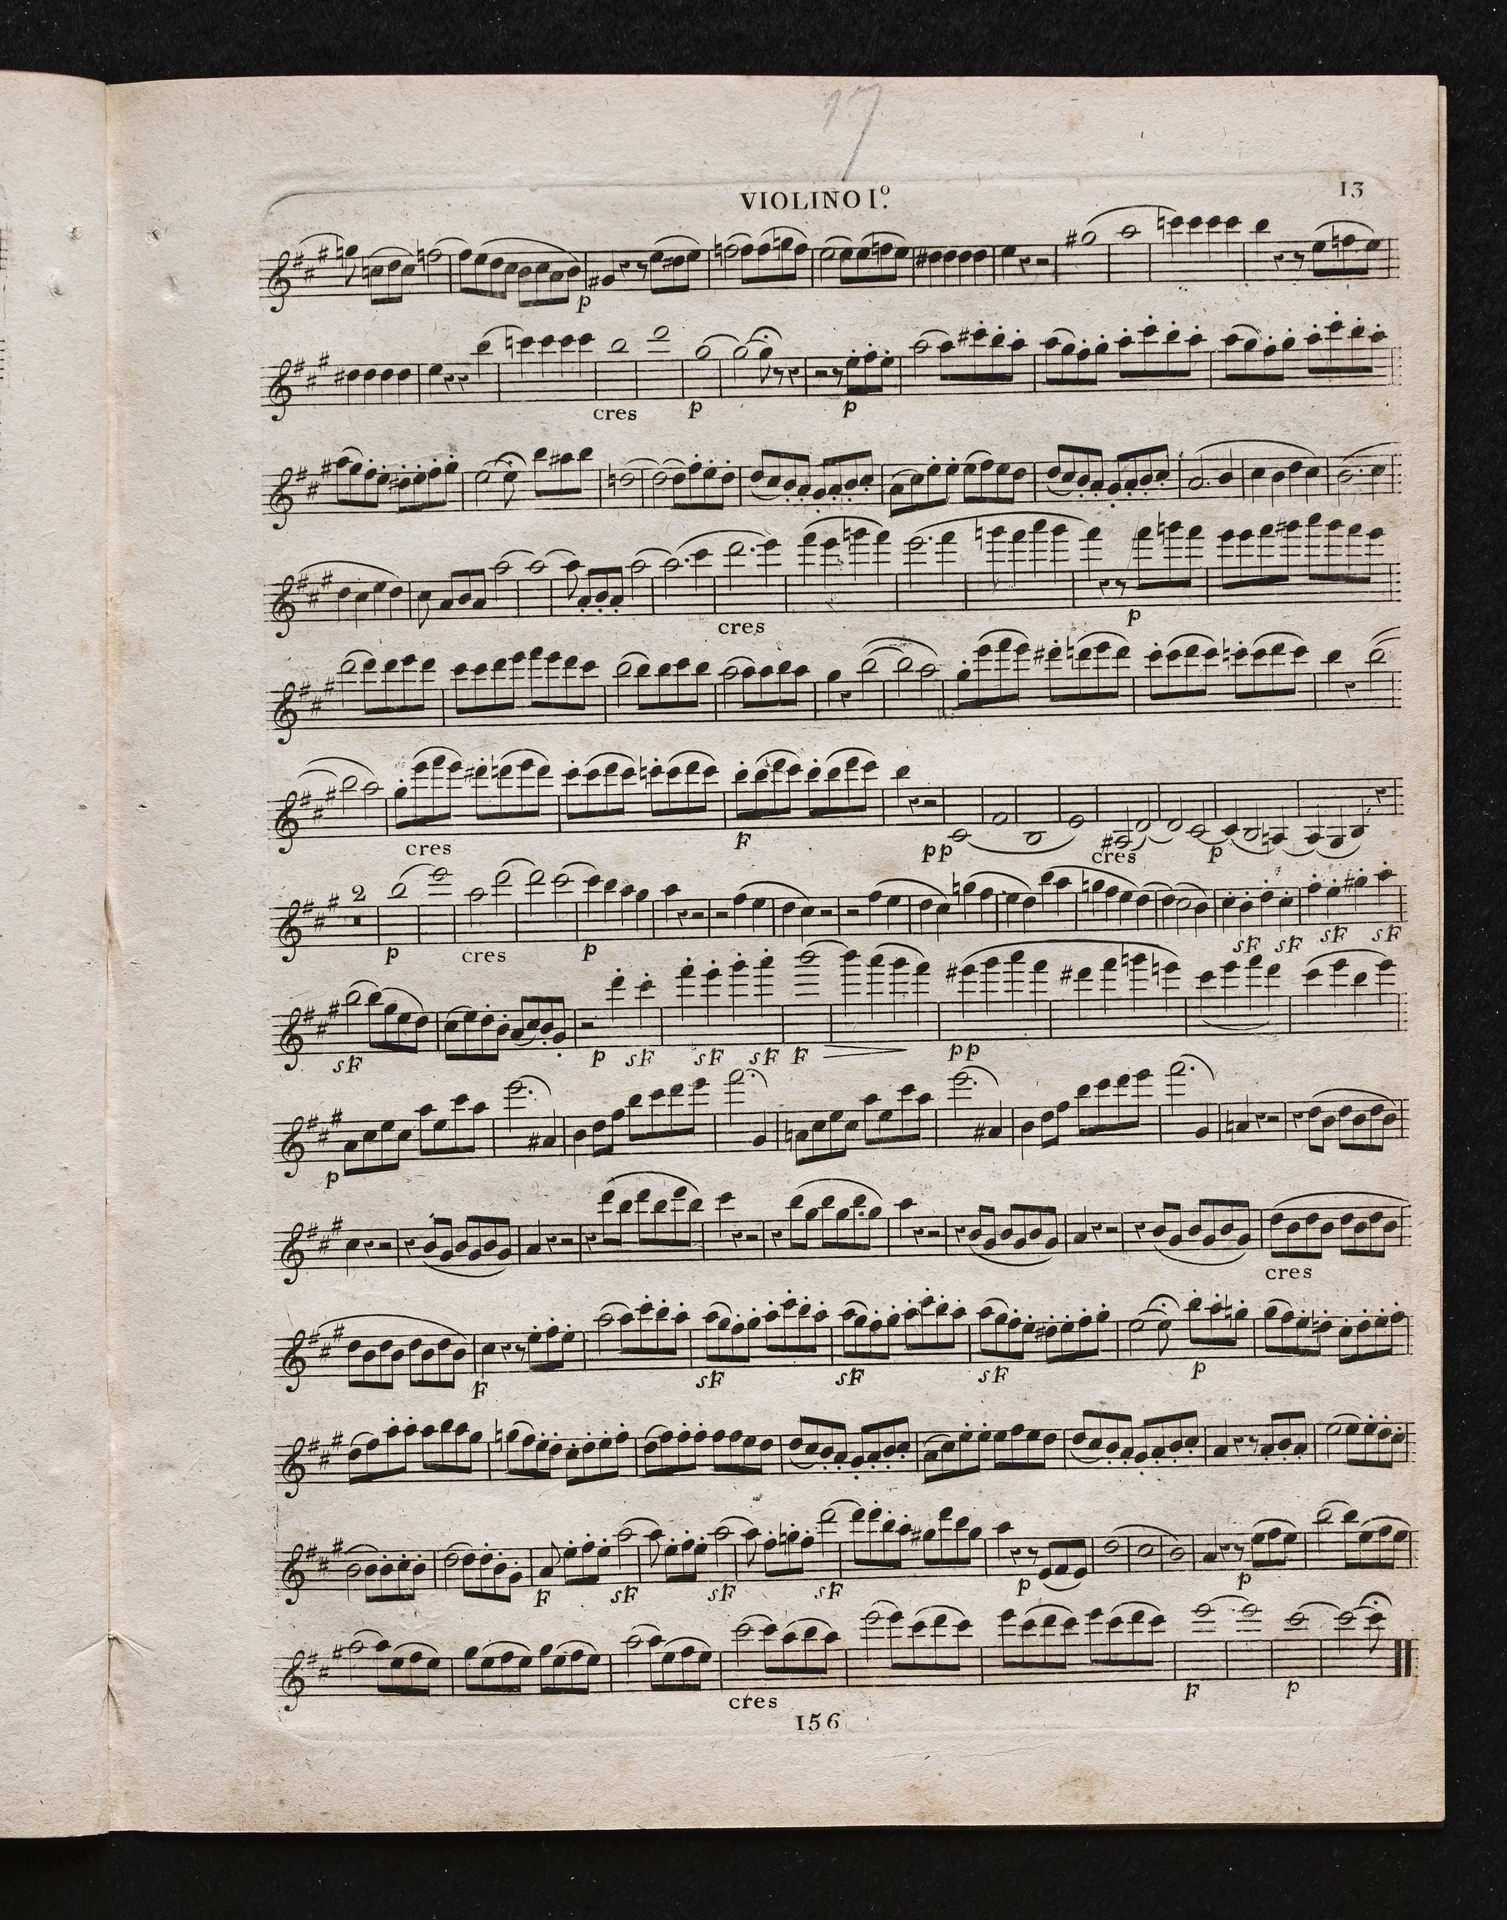 17
VIOLINO Iº.
13
p
cres p p
cres p
cres F pp cres p
2
p cres p sF sF sF sF
sF p sF sF sF F pp
p
cres
F sF sF sF p
F sF sF sF p p
cres F p
156